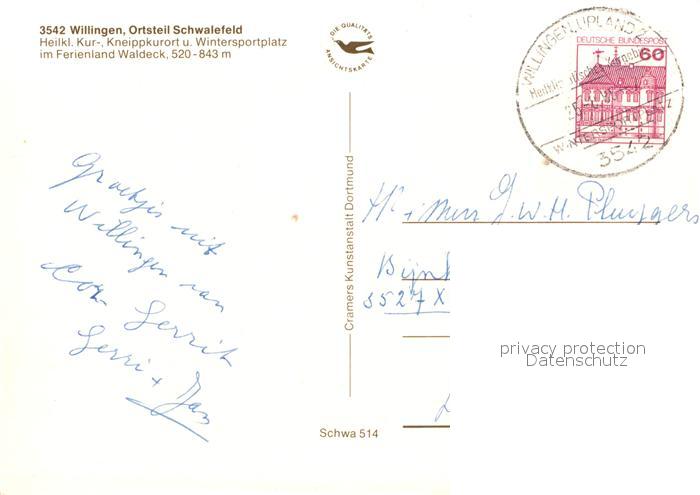 3542 Willingen, Ortsteil Schwalefeld
Heilkl. Kur-, Kneippkurort u. Wintersportplatz
im Ferienland Waldeck, 520-843 m
DIE QUALITÄTS
ANSICHTSKARTE
WILLINGEN, UPLAND
3542
DEUTSCHE BUNDESPOST
60
Groetjes uit
Willingen van
Cor Gerrit
Gerri + Jan
Cramers Kunstanstalt Dortmund
Hr + Mevr J.W.H.
3527 X
privacy protection
Datenschutz
Schwa 514